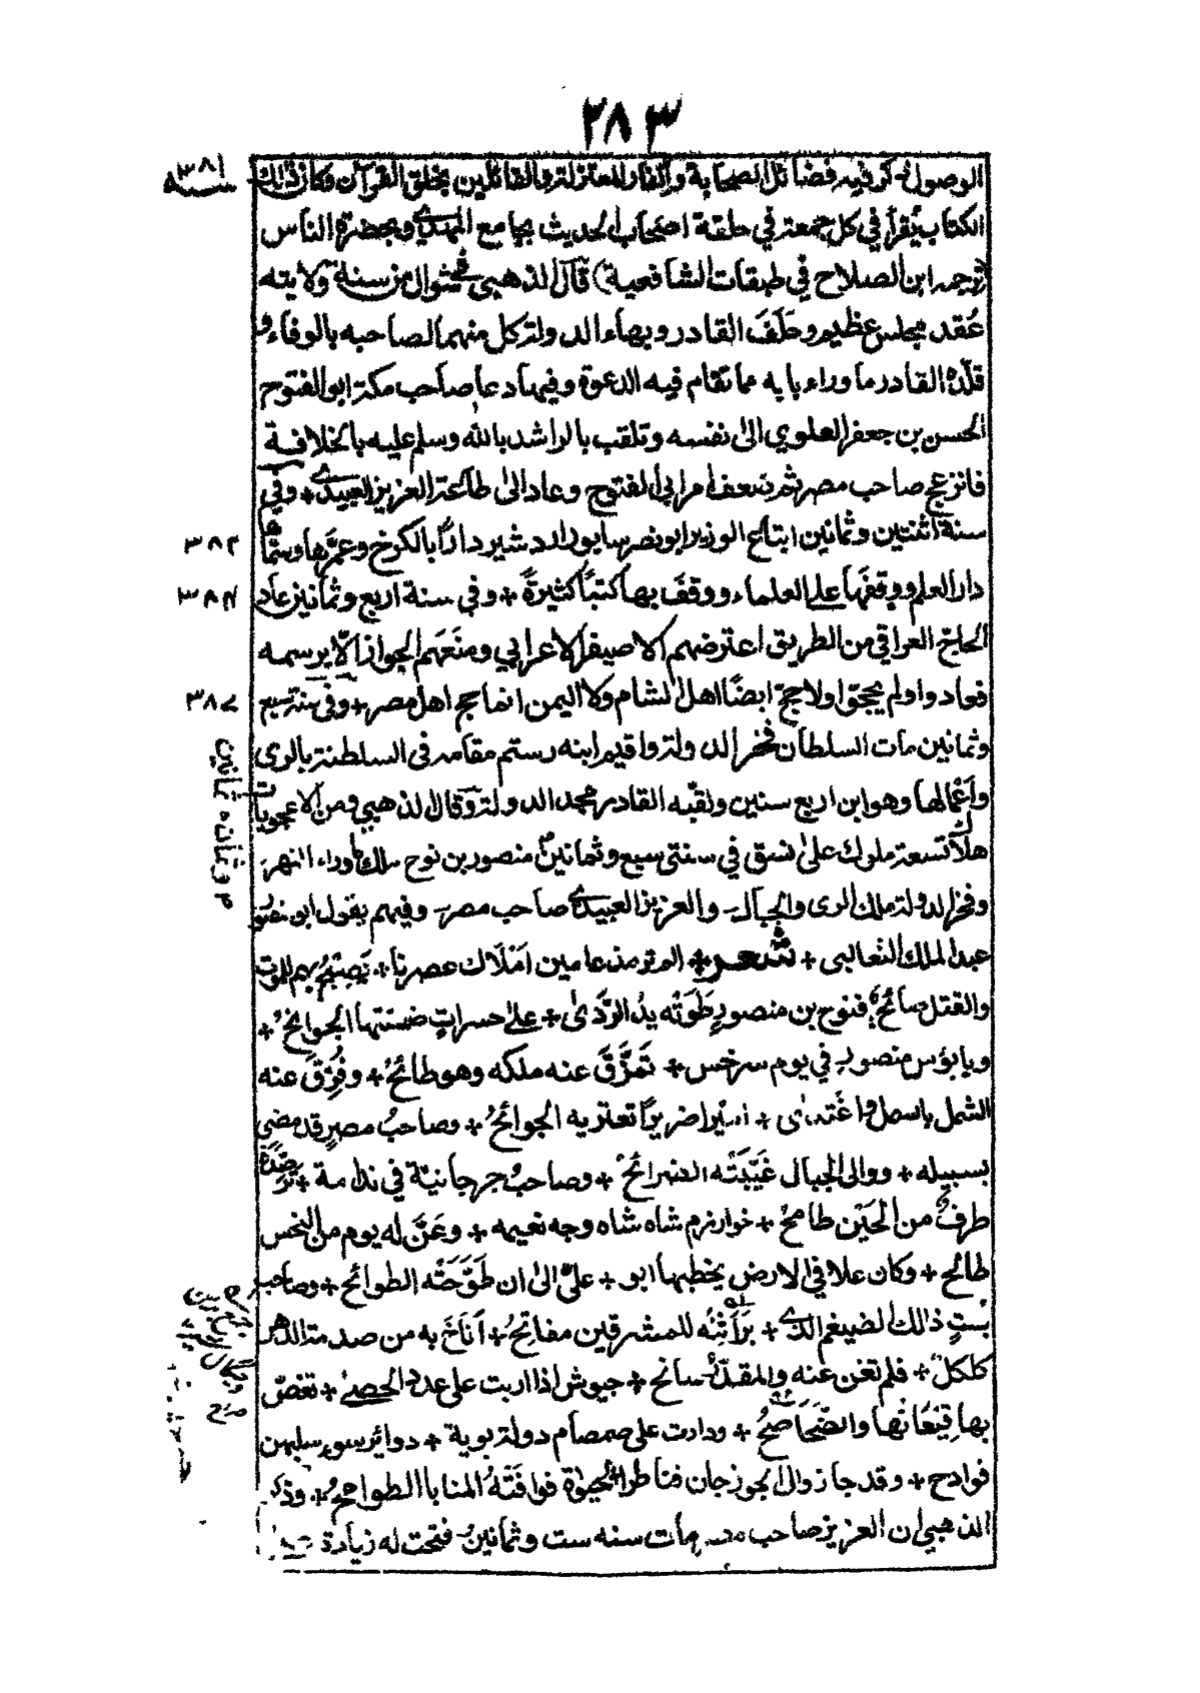 ٢٨٣
الاصول ذكر فيه فضائل الصحابة وإكفار المعتزلة والقائلين بخلق القرآن وكان ذلك
سنة ٣٨١
الكتاب يُقرأ في كل جمعة في حلقة اصحاب الحديث بجامع المهدي وبحضرة الناس
(ترجمه ابن الصلاح في طبقات الشافعية) قال الذهبي في شوال من سنة ولايته
عُقد مجلس عظيم وحَلَفَ القادر وبهاء الدولة كل منهما لصاحبه بالوفاء و
قلّده القادر ما وراء بابه مما تقام فيه الدعوة وفيها دعا صاحب مكة ابو الفتوح
الحسن بن جعفر العلوي الى نفسه وتلقب بالراشد بالله وسلم عليه بالخلافة
فانزعج صاحب مصر ثم ضعف امر ابي الفتوح وعاد الى طاعة العزيز العبيدي + وفي
سنة اثنتين وثمانين ابتاع الوزير ابو نصر سابور اردشير دارًا بالكرخ وعمّرها وسمّاها
٣٨٢
دار العلم ووقفها على العلماء ووقف بها كتبًا كثيرةً + وفي سنة اربع وثمانين عاد
٣٨٤
الحاج العراقي من الطريق اعترضهم الاصيفر الاعرابي ومنعهم الجواز الّا برسمه
فعادوا ولم يحجّوا ولا حجّ ايضًا اهل الشام ولا اليمن انما حج اهل مصر + وفي سنة سبع
٣٨٧
وثمانين مات السلطان فخر الدولة واقيم ابنه رستم مقامه في السلطنة بالري
واعمالها وهو ابن اربع سنين ولقّبه القادر مجد الدولة وقال الذهبي ومن الاعجوبات
هلاك تسعة ملوك على نسق في سنتي سبع وثمانين منصور بن نوح ملك ماوراء النهر
وفخر الدولة ملك الري والجبال والعزيز العبيدي صاحب مصر وفيهم يقول ابو منصور
عبد الملك الثعالبي + شعر + الم تر مذ عامين امْلَاك عصرنا + يَصيح بهم للموت
والقتل صائح + فنوح بن منصورٍ طَوَتْه يدُ الرَّدَىٰ + على حسراتٍ ضمنتها الجوانحُ +
ويا بؤس منصور في يوم سرخس + تَمَزَّقَ عنه ملكه وهو طائحُ + وفُرِّقَ عنه
الشمل بالسمل واغتدى + اسيرا ضريرًا تعتريه الجوائحُ + وصاحبُ مصرٍ قد مضى
بسبيله + ووالي الجبال غَيَّبَتْه الضرائحُ + وصاحبُ جرجانيّة في ندامة + ترصّده
طرفٌ من الحَيْن طامحُ + خوارزم شاه شاه وجه نعيمه + وعَنَّ له يوم من النحس
طالح + وكان علا في الارض يخطبها ابو + عليّ الى ان طَوَّحَتْه الطوائح + وصاحب
بُستٍ ذلك الضيغم الذي + بَرَاثنُه للمشرقين مفاتحُ + أناخَ به من صدمة الدهر
كلكلٌ + فلم تغن عنه والمقدّر سانح + جيوش اذا اربت على عدد الحصى + تغصّ
بها قِيعَانُها والضَّحَاصحُ + ودارت على صمصام دولة بوية + دوائر سوء سلبهن
فوادح + وقد جاز والي الجوزجان قناطر الحيوٰة فوافَتْهُ المنايا الطوامحُ + وذكر
الذهبي ان العزيز صاحب مصر مات سنه ست وثمانين فتحت له زيادة